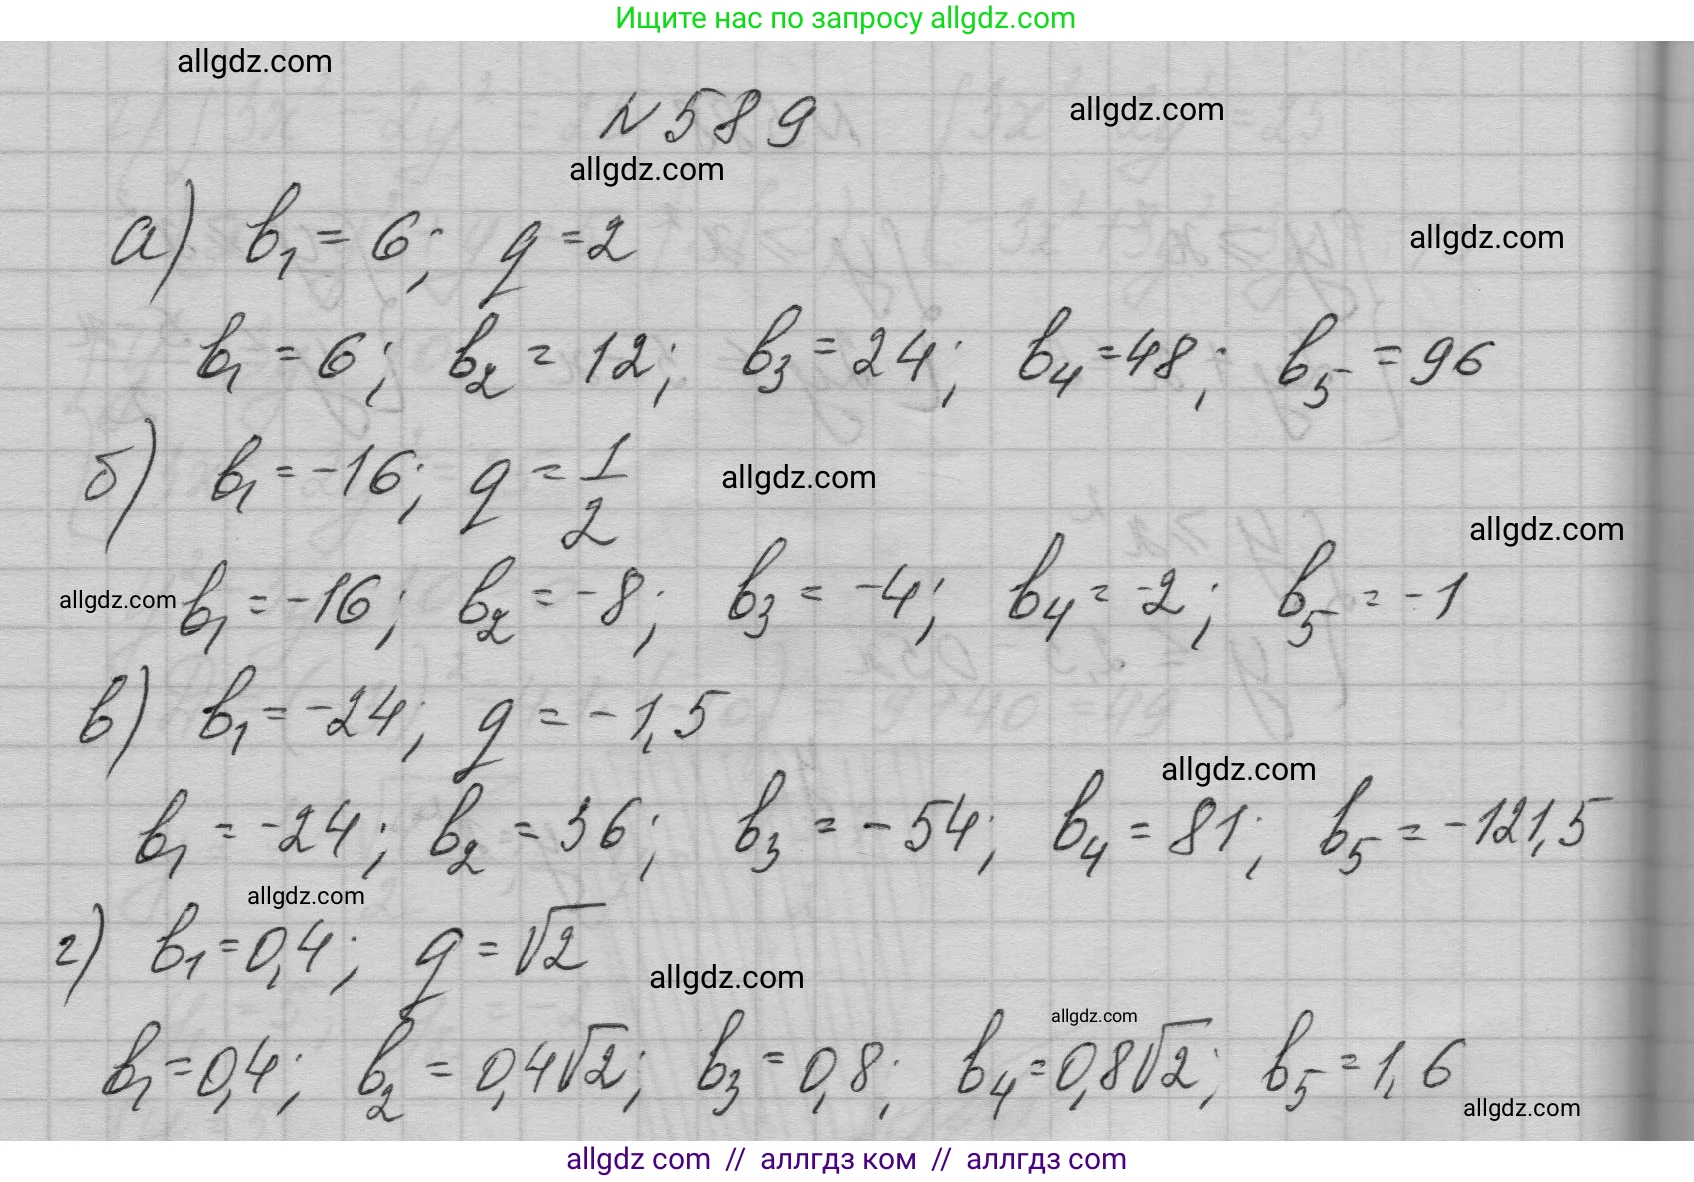 Ищите нас по запросу allgdz.com
allgdz.com
№589
allgdz.com
allgdz.com
а) b₁ = 6; q = 2
allgdz.com
b₁ = 6; b₂ = 12; b₃ = 24; b₄ = 48; b₅ = 96
б) b₁ = -16; q = 1/2
allgdz.com
allgdz.com
allgdz.com
b₁ = -16; b₂ = -8; b₃ = -4; b₄ = -2; b₅ = -1
в) b₁ = -24; q = -1,5
allgdz.com
b₁ = -24; b₂ = 36; b₃ = -54; b₄ = 81; b₅ = -121,5
allgdz.com
г) b₁ = 0,4; q = √2
allgdz.com
allgdz.com
b₁ = 0,4; b₂ = 0,4√2; b₃ = 0,8; b₄ = 0,8√2; b₅ = 1,6
allgdz.com
allgdz com // аллгдз ком // аллгдз com